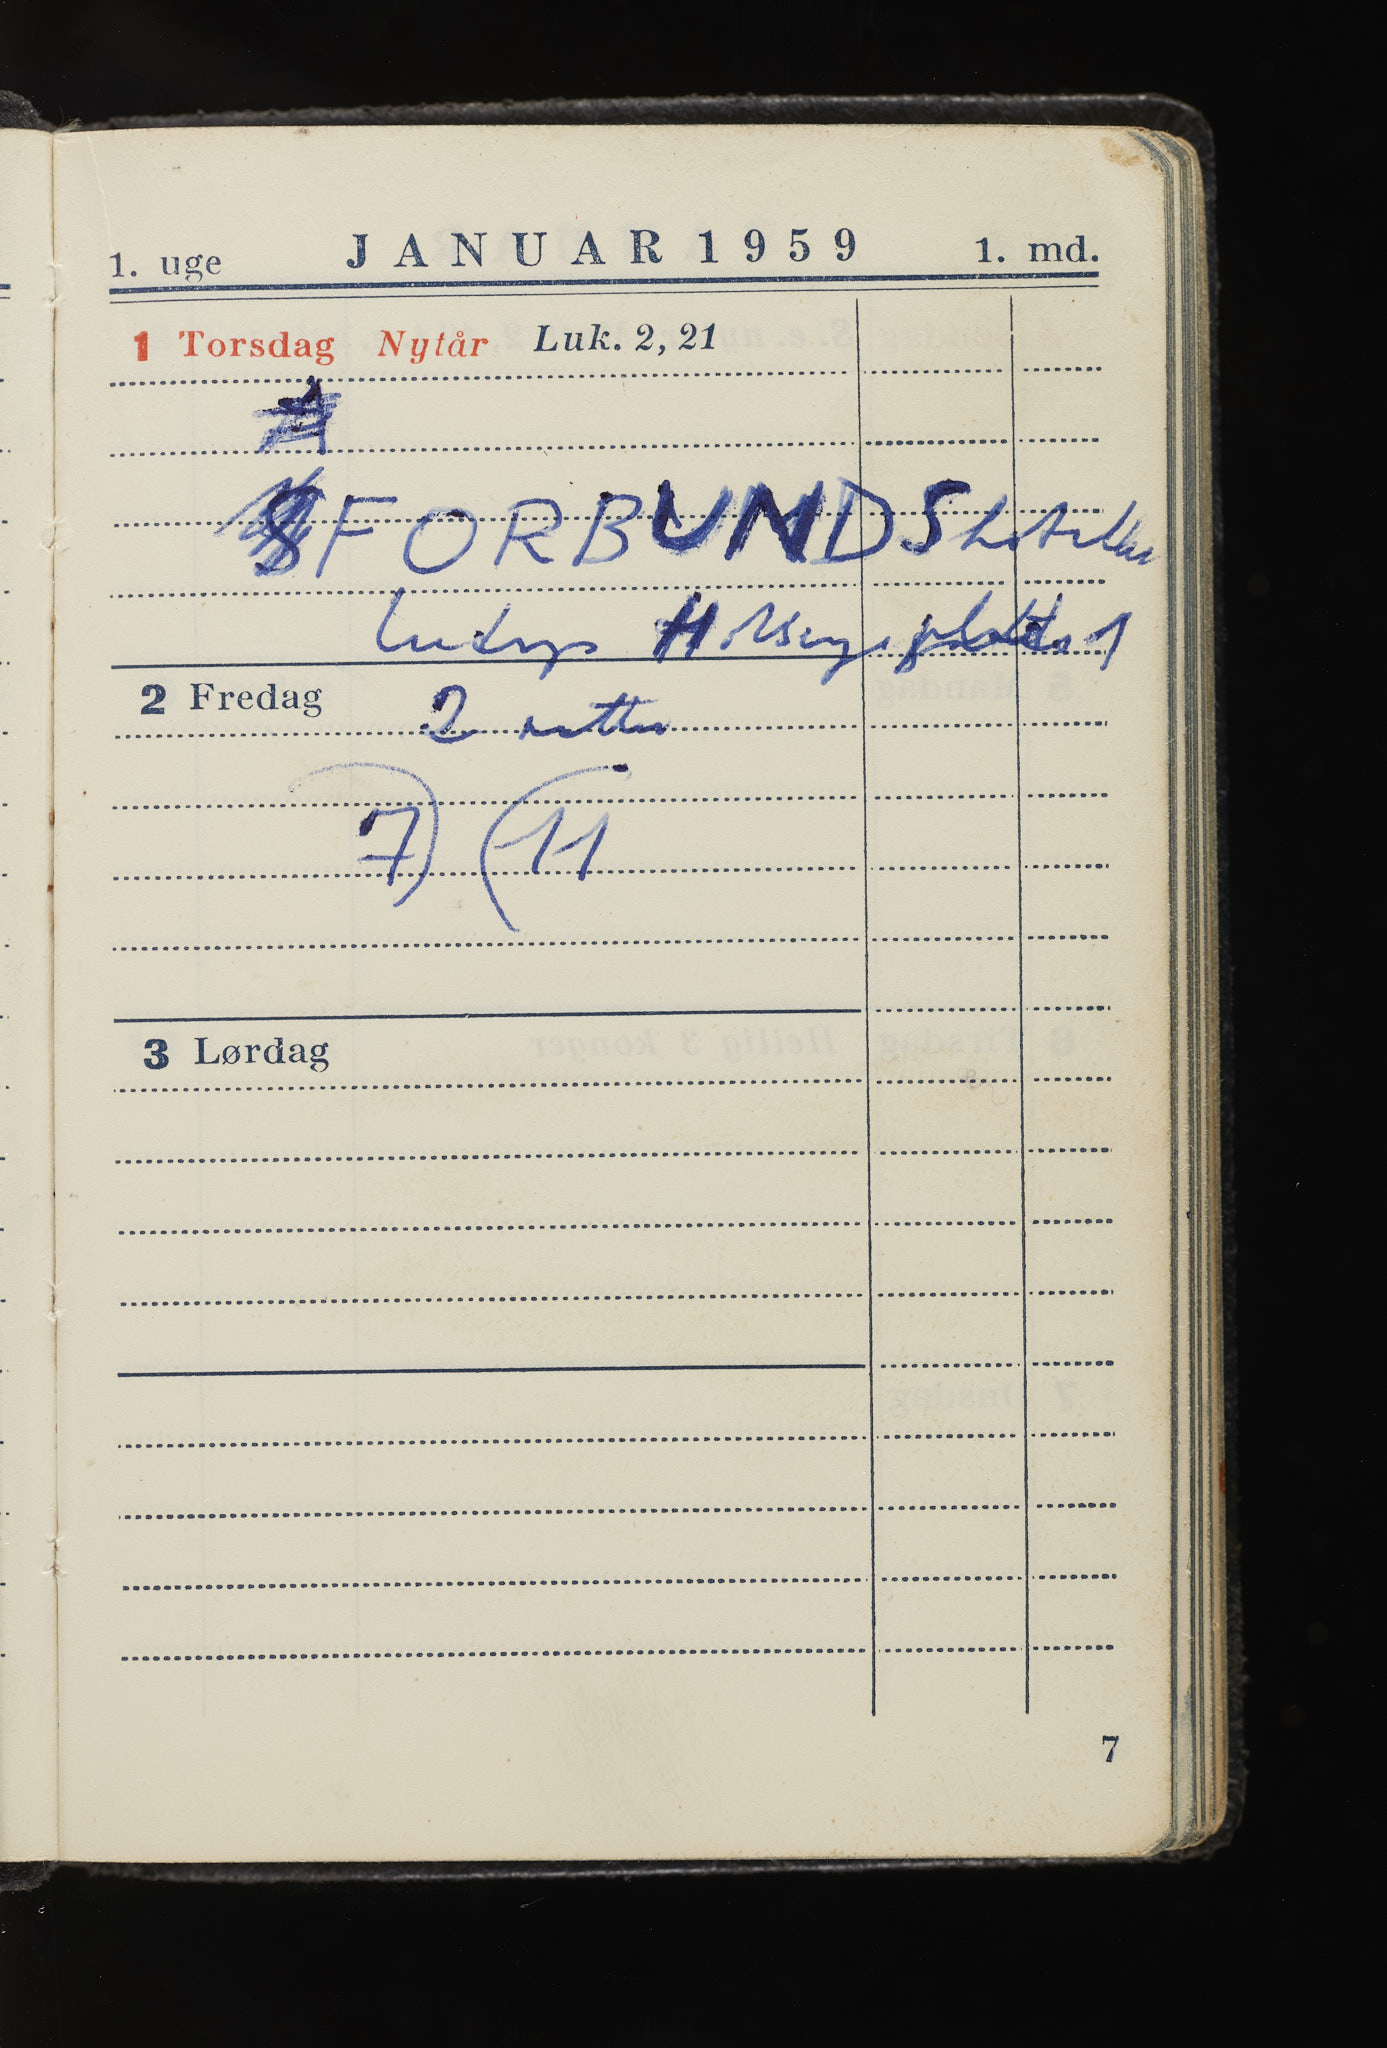 1. uge JANUAR 1959 1. md.
1 Torsdag Nytår Luk. 2, 21
FORBUNDShotellet
Ludvigs Holbergs plads 1
2 Fredag 2 nætter
7) (11
3 Lørdag
7